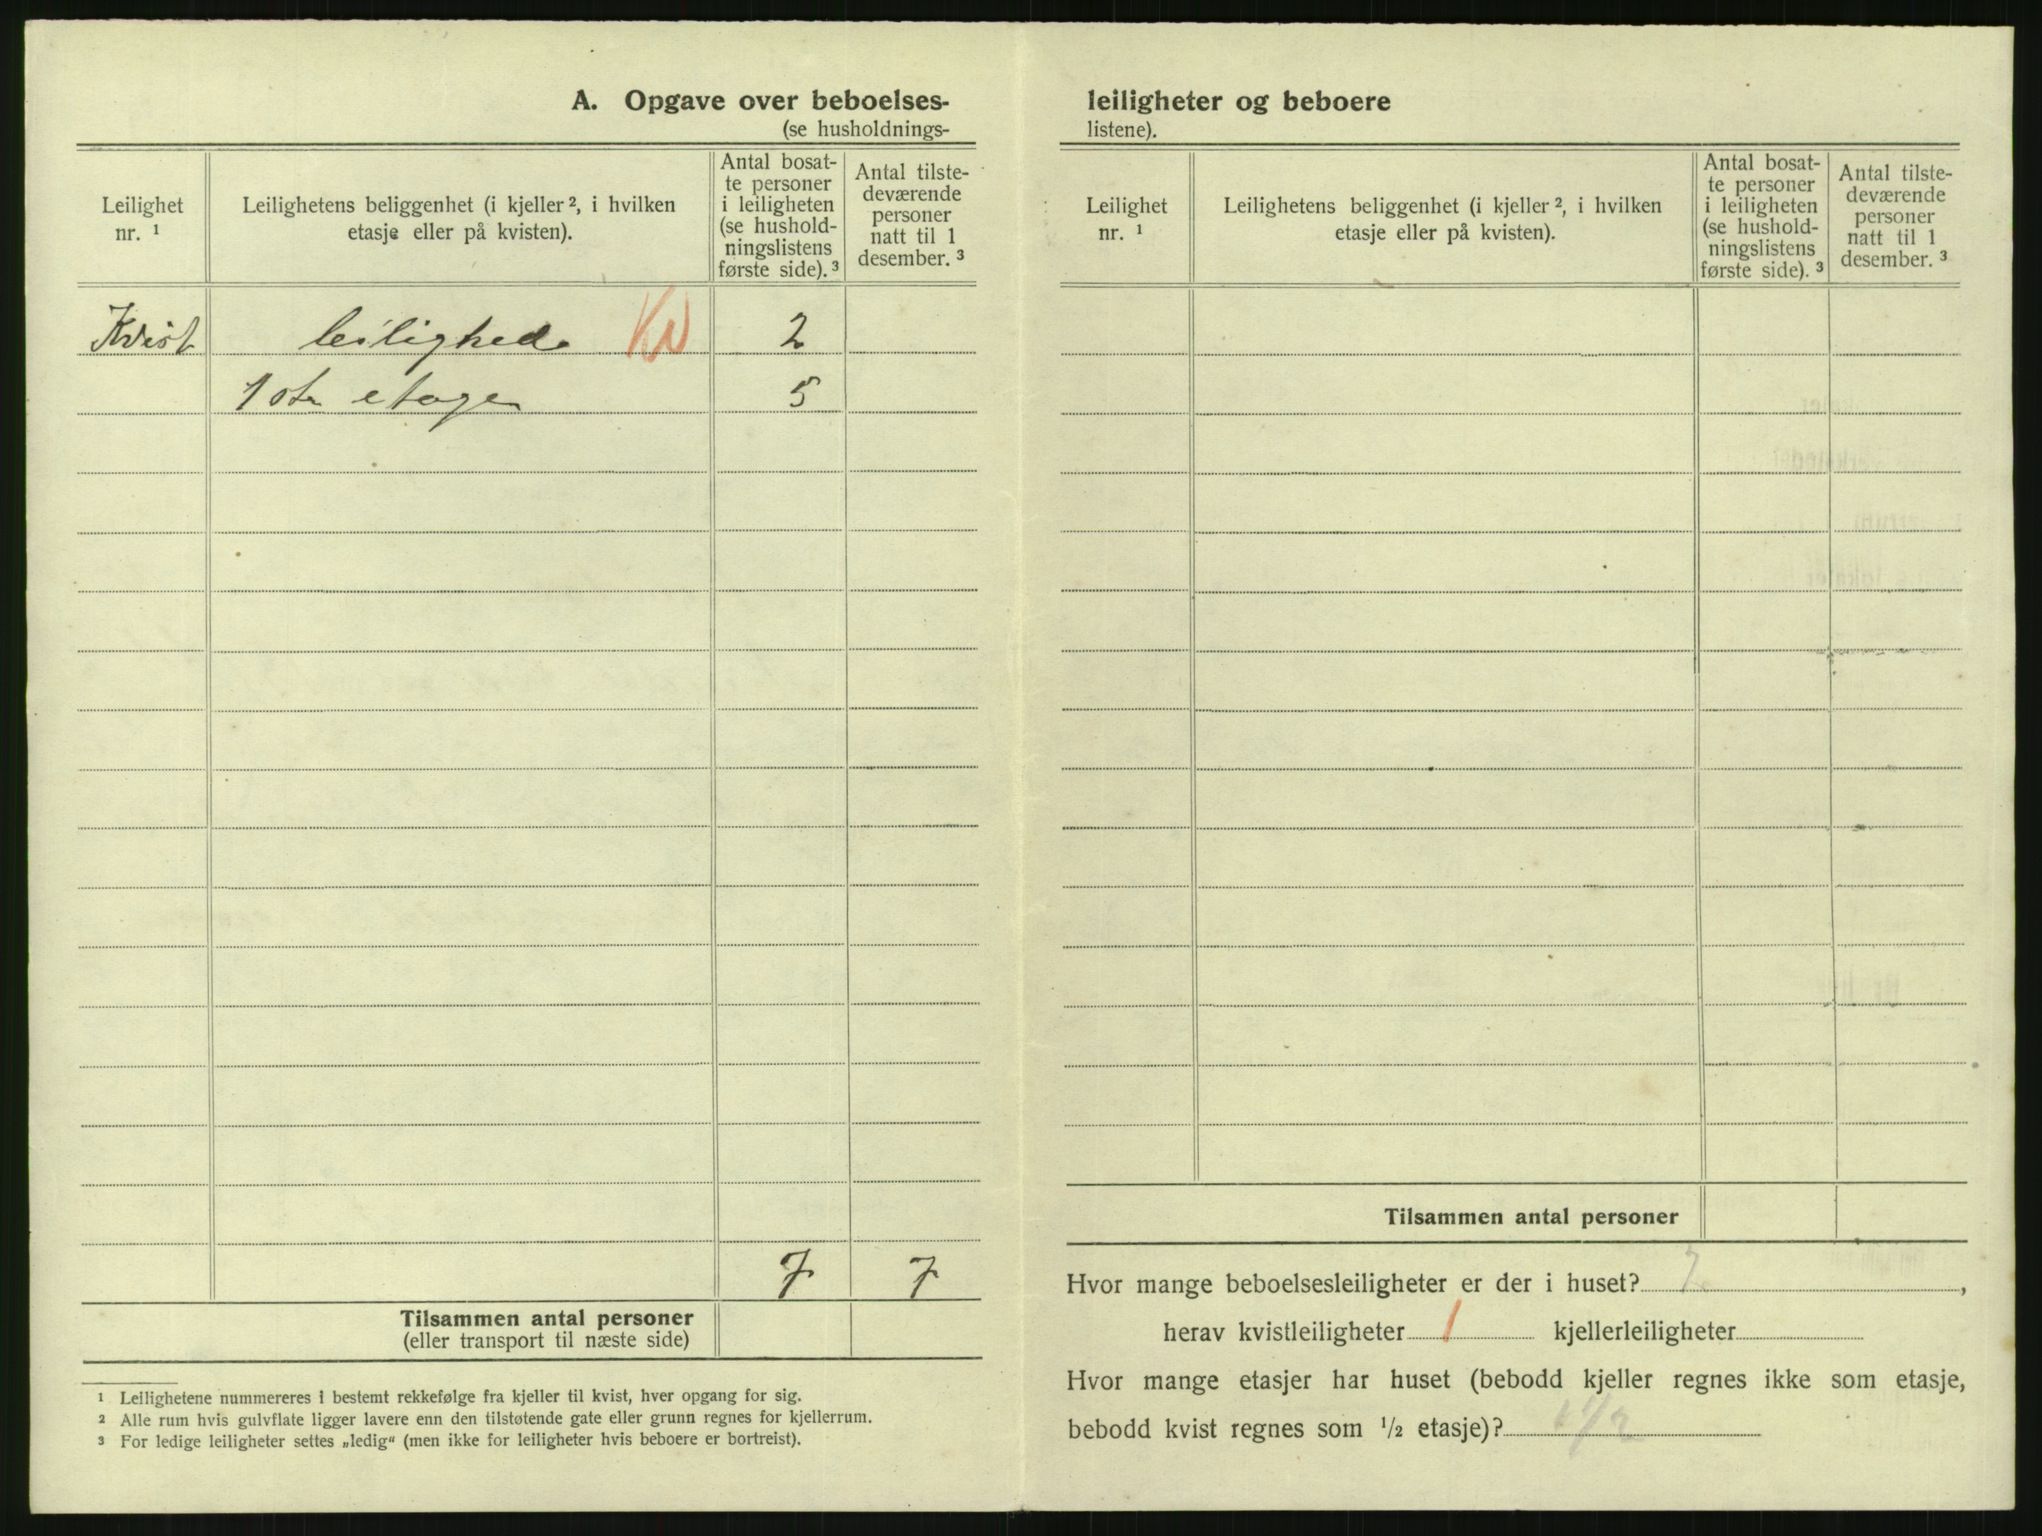 A. Opgave over beboelses-
(se husholdnings-
Leilighet nr. ¹
Leilighetens beliggenhet (i kjeller ², i hvilken etasje eller på kvisten).
Antal bosat-
te personer
i leiligheten
(se hushold-
ningslistens
første side). ³
Antal tilste-
deværende
personer
natt til 1
desember. ³
Kvist leilighed Kv 2
1ste etage 5
7 7
Tilsammen antal personer
(eller transport til næste side)
¹ Leilighetene nummereres i bestemt rekkefølge fra kjeller til kvist, hver opgang for sig.
² Alle rum hvis gulvflate ligger lavere enn den tilstøtende gate eller grunn regnes for kjellerrum.
³ For ledige leiligheter settes „ledig“ (men ikke for leiligheter hvis beboere er bortreist).
leiligheter og beboere
listene).
Leilighet nr. ¹
Leilighetens beliggenhet (i kjeller ², i hvilken etasje eller på kvisten).
Antal bosat-
te personer
i leiligheten
(se hushold-
ningslistens
første side). ³
Antal tilste-
deværende
personer
natt til 1
desember. ³
Tilsammen antal personer
Hvor mange beboelsesleiligheter er der i huset? 2,
herav kvistleiligheter 1 kjellerleiligheter
Hvor mange etasjer har huset (bebodd kjeller regnes ikke som etasje,
bebodd kvist regnes som ½ etasje)? 1½